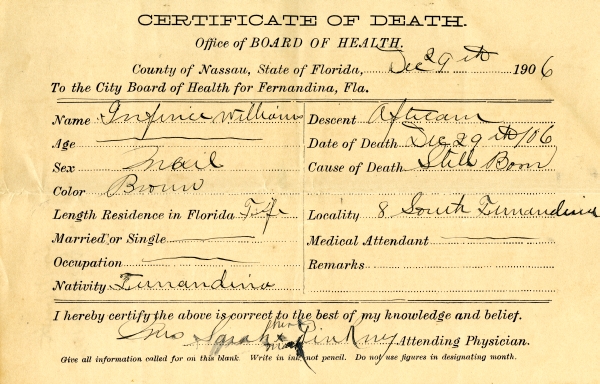 CERTIFICATE OF DEATH.
Office of BOARD OF HEALTH.
County of Nassau, State of Florida, Dec 29th 1906
To the City Board of Health for Fernandina, Fla.
Name Infinie Williams Descent African
Age Date of Death Dec 29th/06
Sex Mail Cause of Death Still Born
Color Brown
Length Residence in Florida Locality 8 South Fernandina
Married or Single Medical Attendant
Occupation Remarks
Nativity Fernandina
I hereby certify the above is correct to the best of my knowledge and belief.
her
Mrs Sarah x Pinkney Attending Physician.
mark
Give all information called for on this blank. Write in ink, not pencil. Do not use figures in designating month.